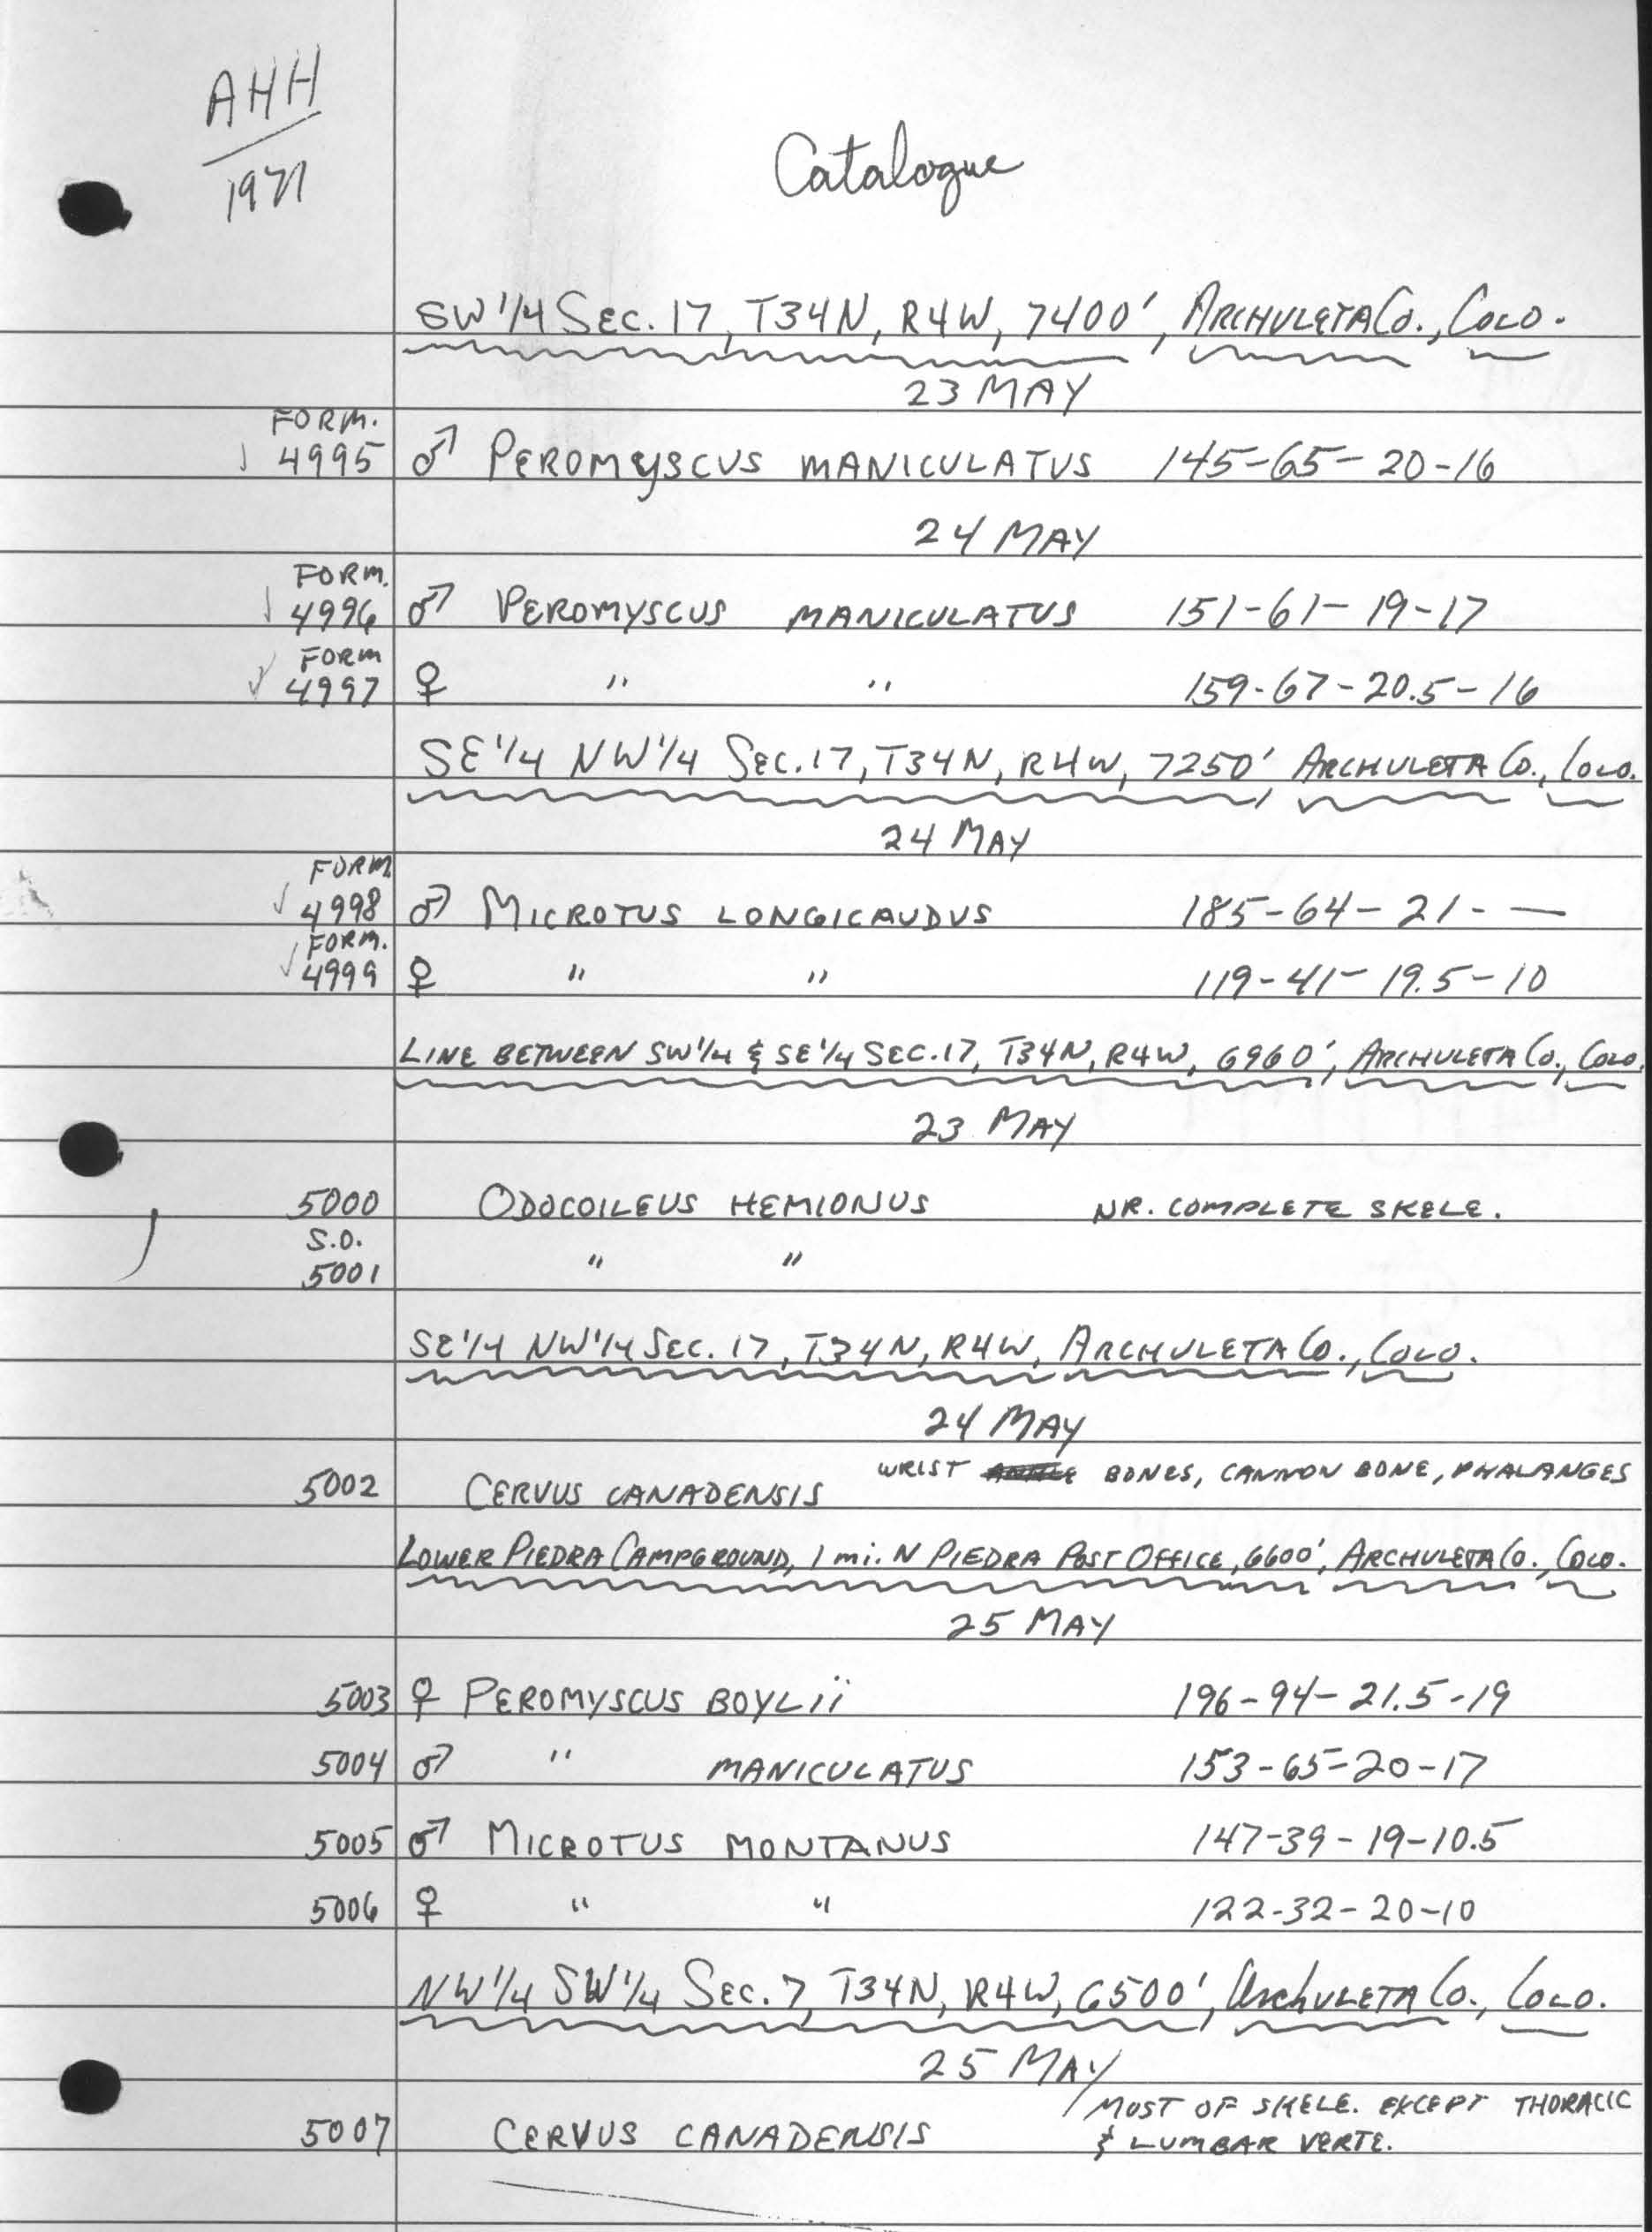 AHH
1971
Catalogue
SW 1/4 Sec. 17, T34N, R4W, 7400', ARCHULETA Co., COLO.
23 MAY
FORM.
4995 ♂ PEROMYSCUS MANICULATUS 145-65-20-16
24 MAY
FORM.
4996 ♂ PEROMYSCUS MANICULATUS 151-61-19-17
FORM
4997 ♀ " " 159-67-20.5-16
SE 1/4 NW 1/4 SEC. 17, T34N, R4W, 7250' ARCHULETA Co., COLO.
24 MAY
FORM
4998 ♂ MICROTUS LONGICAUDUS 185-64-21- —
FORM.
4999 ♀ " " 119-41-19.5-10
LINE BETWEEN SW 1/4 & SE 1/4 SEC. 17, T34N, R4W, 6960', ARCHULETA Co., COLO.
23 MAY
5000 ODOCOILEUS HEMIONUS NR. COMPLETE SKELE.
S.O.
5001 " "
SE 1/4 NW 1/4 SEC. 17, T34N, R4W, ARCHULETA Co., COLO.
24 MAY
WRIST BONES, CANNON BONE, PHALANGES
5002 CERVUS CANADENSIS
LOWER PIEDRA CAMPGROUND, 1 mi. N PIEDRA POST OFFICE, 6600', ARCHULETA Co., COLO.
25 MAY
5003 ♀ PEROMYSCUS BOYLii 196-94-21.5-19
5004 ♂ " MANICULATUS 153-65-20-17
5005 ♂ MICROTUS MONTANUS 147-39-19-10.5
5006 ♀ " " 122-32-20-10
NW 1/4 SW 1/4 SEC. 7, T34N, R4W, 6500', ArchULETA Co., COLO.
25 MAY
MOST OF SKELE. EXCEPT THORACIC
5007 CERVUS CANADENSIS & LUMBAR VERTE.